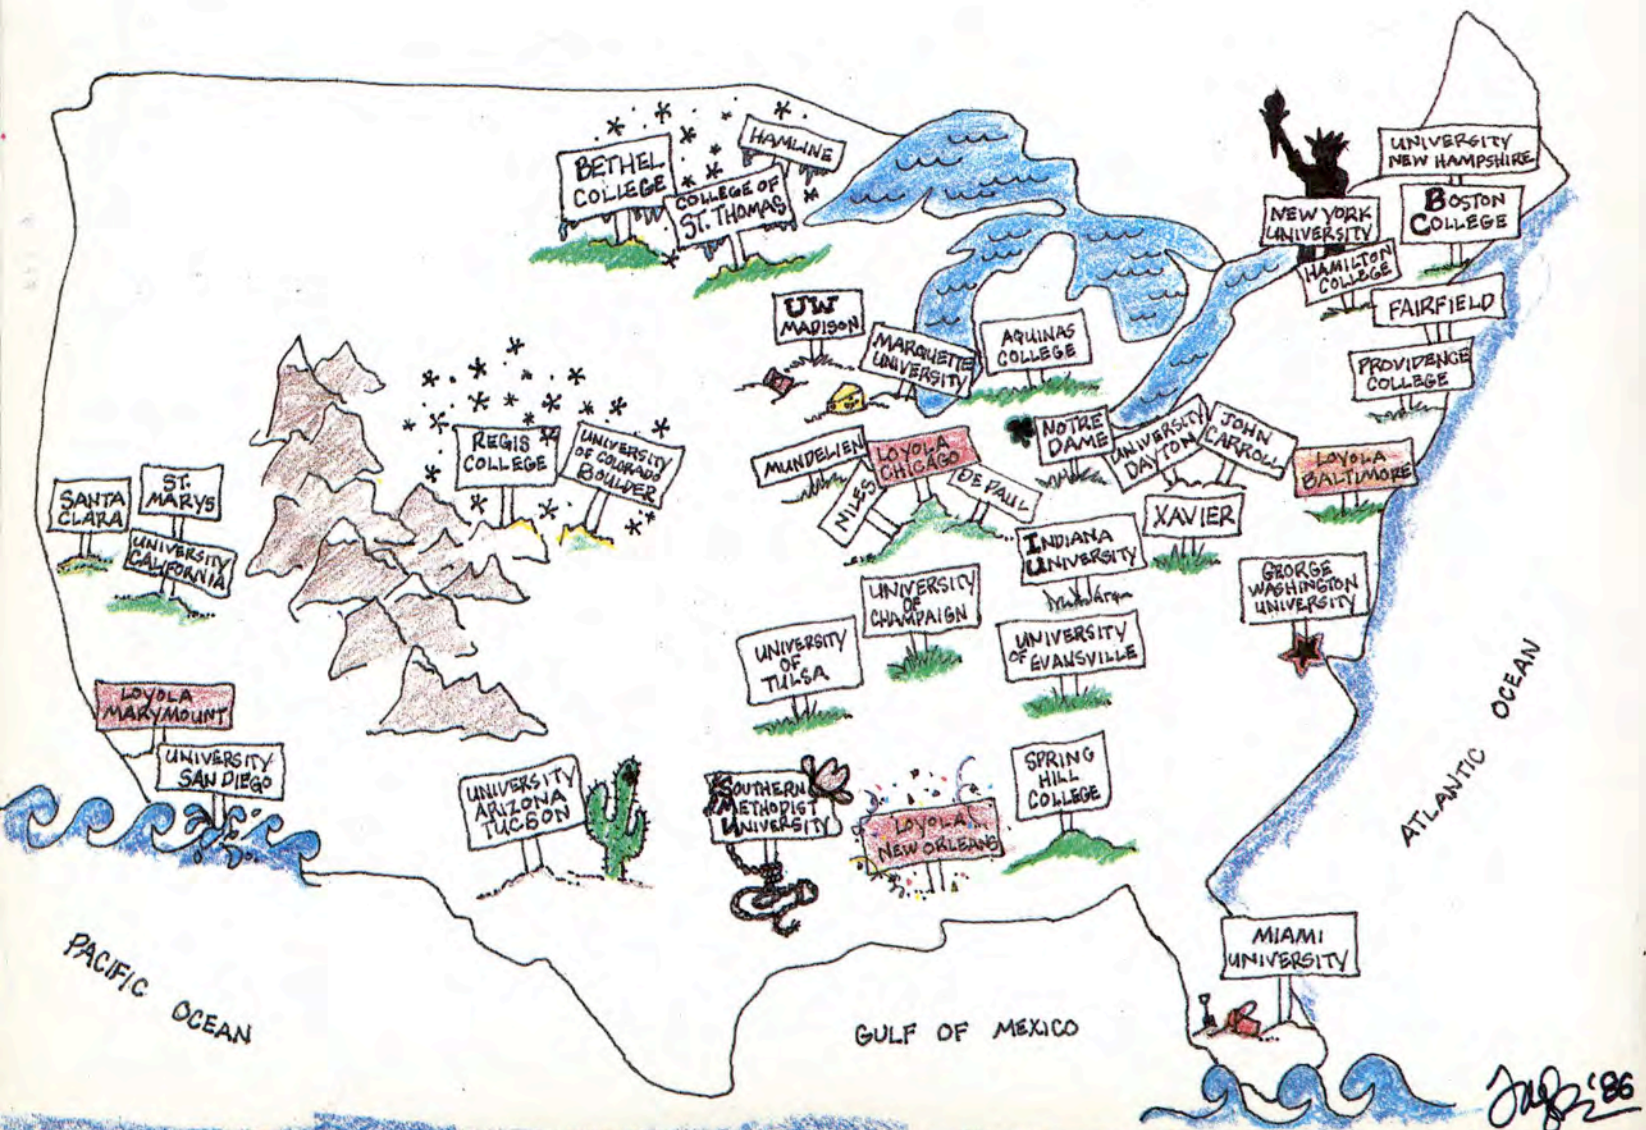 BETHEL
COLLEGE
HAMLINE
COLLEGE OF
ST. THOMAS
UNIVERSITY
NEW HAMPSHIRE
BOSTON
COLLEGE
NEW YORK
UNIVERSITY
HAMILTON
COLLEGE
FAIRFIELD
PROVIDENCE
COLLEGE
UW
MADISON
MARQUETTE
UNIVERSITY
AQUINAS
COLLEGE
REGIS
COLLEGE
UNIVERSITY
OF COLORADO
BOULDER
MUNDELIEN
LOYOLA
CHICAGO
NILES
DE PAUL
NOTRE
DAME
UNIVERSITY
DAYTON
JOHN
CARROLL
LOYOLA
BALTIMORE
SANTA
CLARA
ST.
MARYS
UNIVERSITY
CALIFORNIA
XAVIER
INDIANA
UNIVERSITY
GEORGE
WASHINGTON
UNIVERSITY
UNIVERSITY
OF
CHAMPAIGN
UNIVERSITY
OF
TULSA
UNIVERSITY
OF EVANSVILLE
LOYOLA
MARYMOUNT
UNIVERSITY
SAN DIEGO
UNIVERSITY
ARIZONA
TUCSON
SOUTHERN
METHODIST
UNIVERSITY
LOYOLA
NEW ORLEANS
SPRING
HILL
COLLEGE
MIAMI
UNIVERSITY
ATLANTIC OCEAN
PACIFIC OCEAN
GULF OF MEXICO
'86